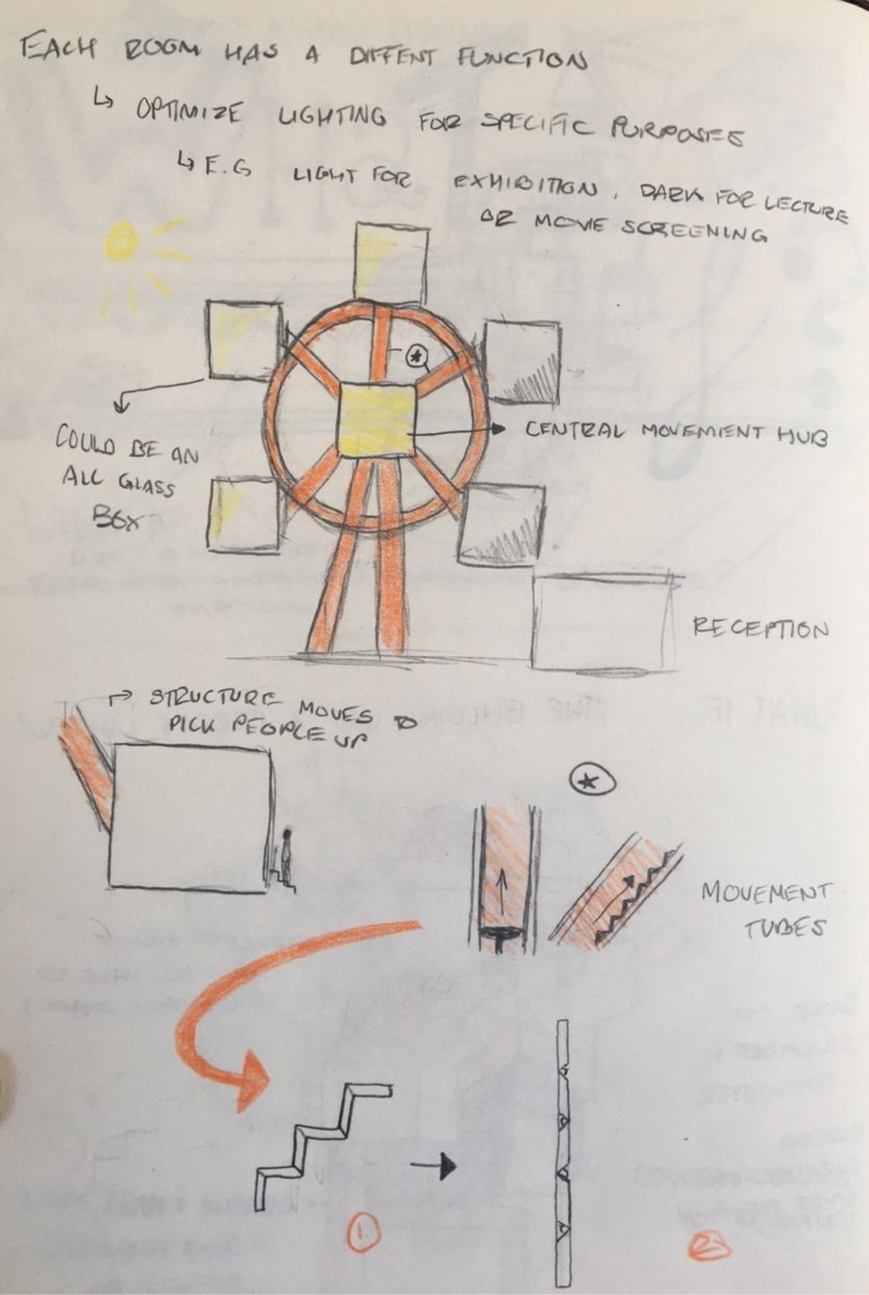 EACH ROOM HAS A DIFFENT FUNCTION
↳ OPTIMIZE LIGHTING FOR SPECIFIC PURPOSES
↳ E.G LIGHT FOR EXHIBITION, DARK FOR LECTURE
OR MOVIE SCREENING
CENTRAL MOVEMENT HUB
COULD BE AN
ALL GLASS
BOX
RECEPTION
STRUCTURE MOVES TO
PICK PEOPLE UP
MOVEMENT
TUBES
1.
2.